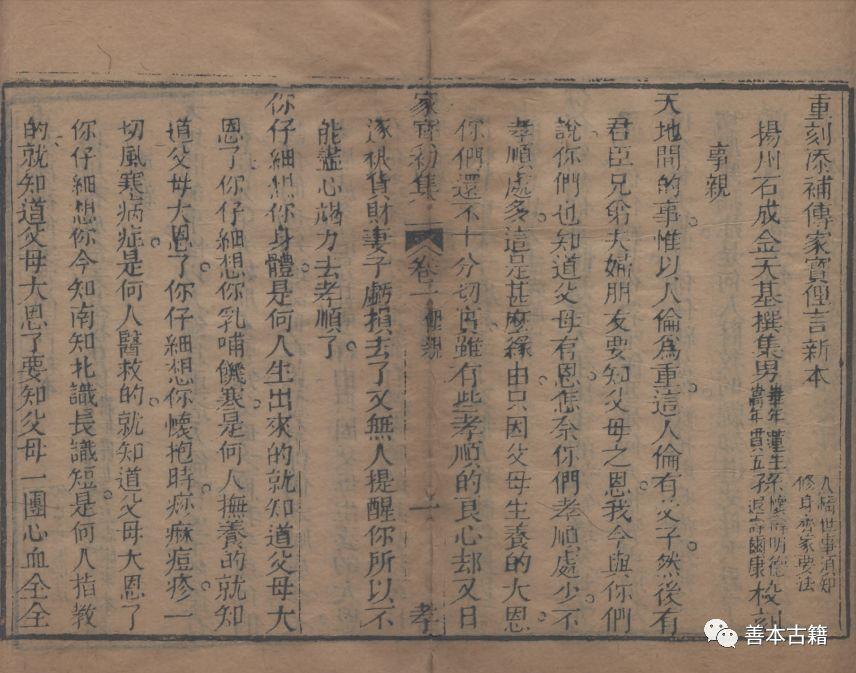 重刻添補傳家寶俚言新本
人情世事須知
修身齊家要法
揚州石成金天基撰集男
年
年
孫
校刻
事親
天地間的事惟以人倫為重這人倫有父子然後有
君臣兄弟夫婦朋友要知父母之恩我今與你們
說你們也知道父母有恩怎奈你們孝順處少不
孝順處多這是甚麼緣由只因父母生養的大恩
你們還不十分切再雖有些孝順的良心却又日
逐被貨財妻子虧損去了又無人提醒你所以不
能盡心竭力去孝順了
你仔細想你身體是何人生出來的就知道父母大
恩了你仔細想你乳哺饑寒是何人撫養的就知
道父母大恩了你仔細想你懷抱時痧麻痘疹一
切風寒病症是何人醫救的就知道父母大恩了
你仔細想你今知南知北識長識短是何人指教
的就知道父母大恩了要知父母一團心血全全
家寶初集
卷二
事親
一
孝
善本古籍